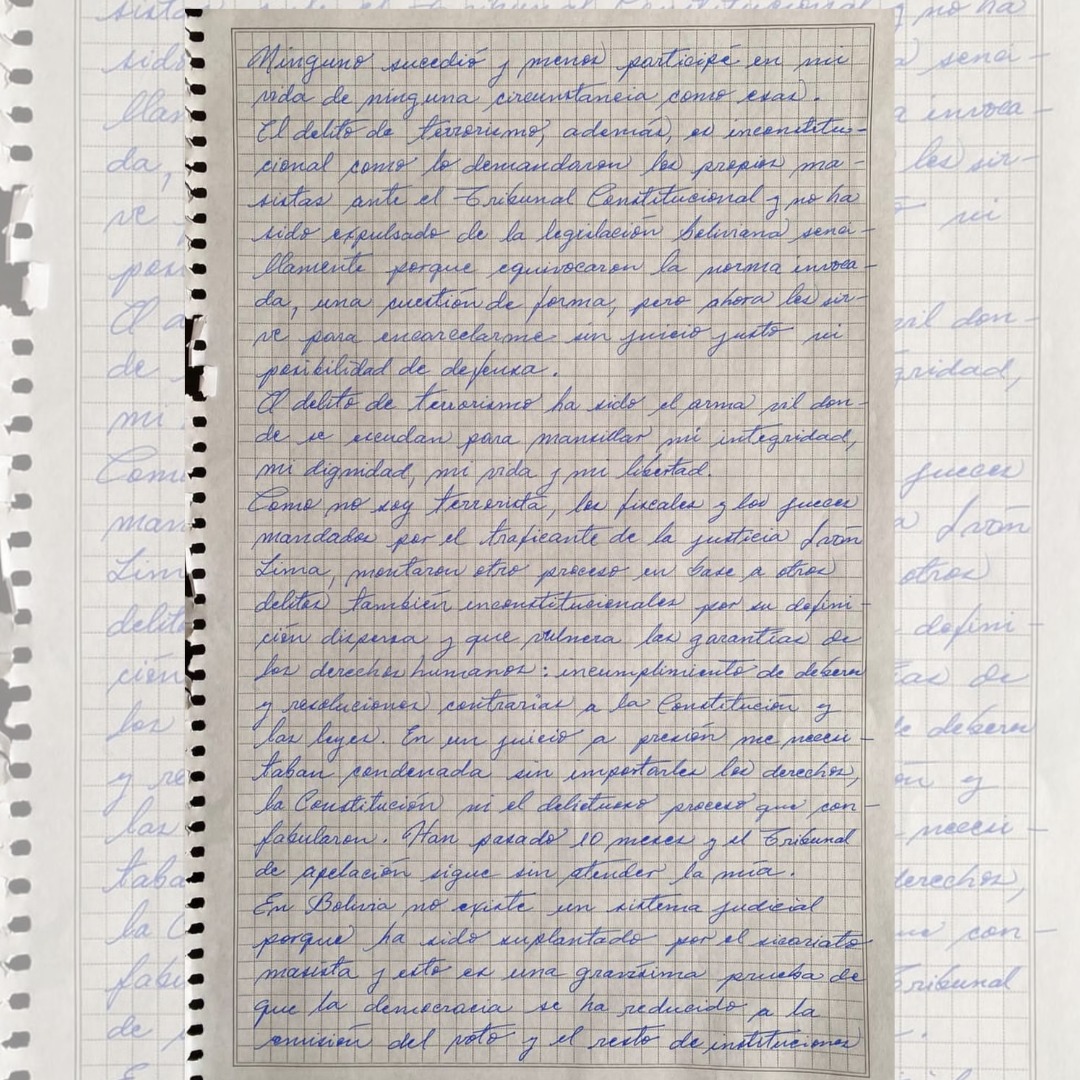 Ninguno sucedió y menos participé en mi
vida de ninguna circunstancia como esas.
El delito de terrorismo, además, es inconstitu-
cional como lo demandaron los propios ma-
sistas ante el Tribunal Constitucional y no ha
sido expulsado de la legislación boliviana senci-
llamente porque equivocaron la norma invoca-
da, una cuestión de forma, pero ahora les sir-
ve para encarcelarme sin juicio justo ni
posibilidad de defensa.
El delito de terrorismo ha sido el arma vil don-
de se escudan para mansillar mi integridad,
mi dignidad, mi vida y mi libertad.
Como no soy terrorista, los fiscales y los jueces
mandados por el traficante de la justicia Iván
Lima, montaron otro proceso en base a otros
delitos también inconstitucionales por su defini-
ción dispersa y que vulnera las garantías de
los derechos humanos: incumplimiento de deberes
y resoluciones contrarias a la Constitución y
las leyes. En un juicio a presión me necesi-
taban condenada sin importarles los derechos,
la Constitución ni el delictuoso proceso que con-
fabularon. Han pasado 10 meses y el Tribunal
de apelación sigue sin atender la mía.
En Bolivia no existe un sistema judicial
porque ha sido suplantado por el sicariato
masista y esto es una gravísima prueba de
que la democracia se ha reducido a la
emisión del voto y el resto de instituciones